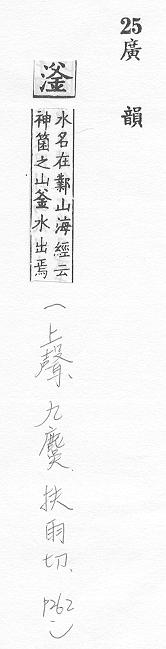 25
廣韻
滏
水名在鄴山海經云
神箘之山釜水出焉
(上聲、九麌、扶雨切、p262)